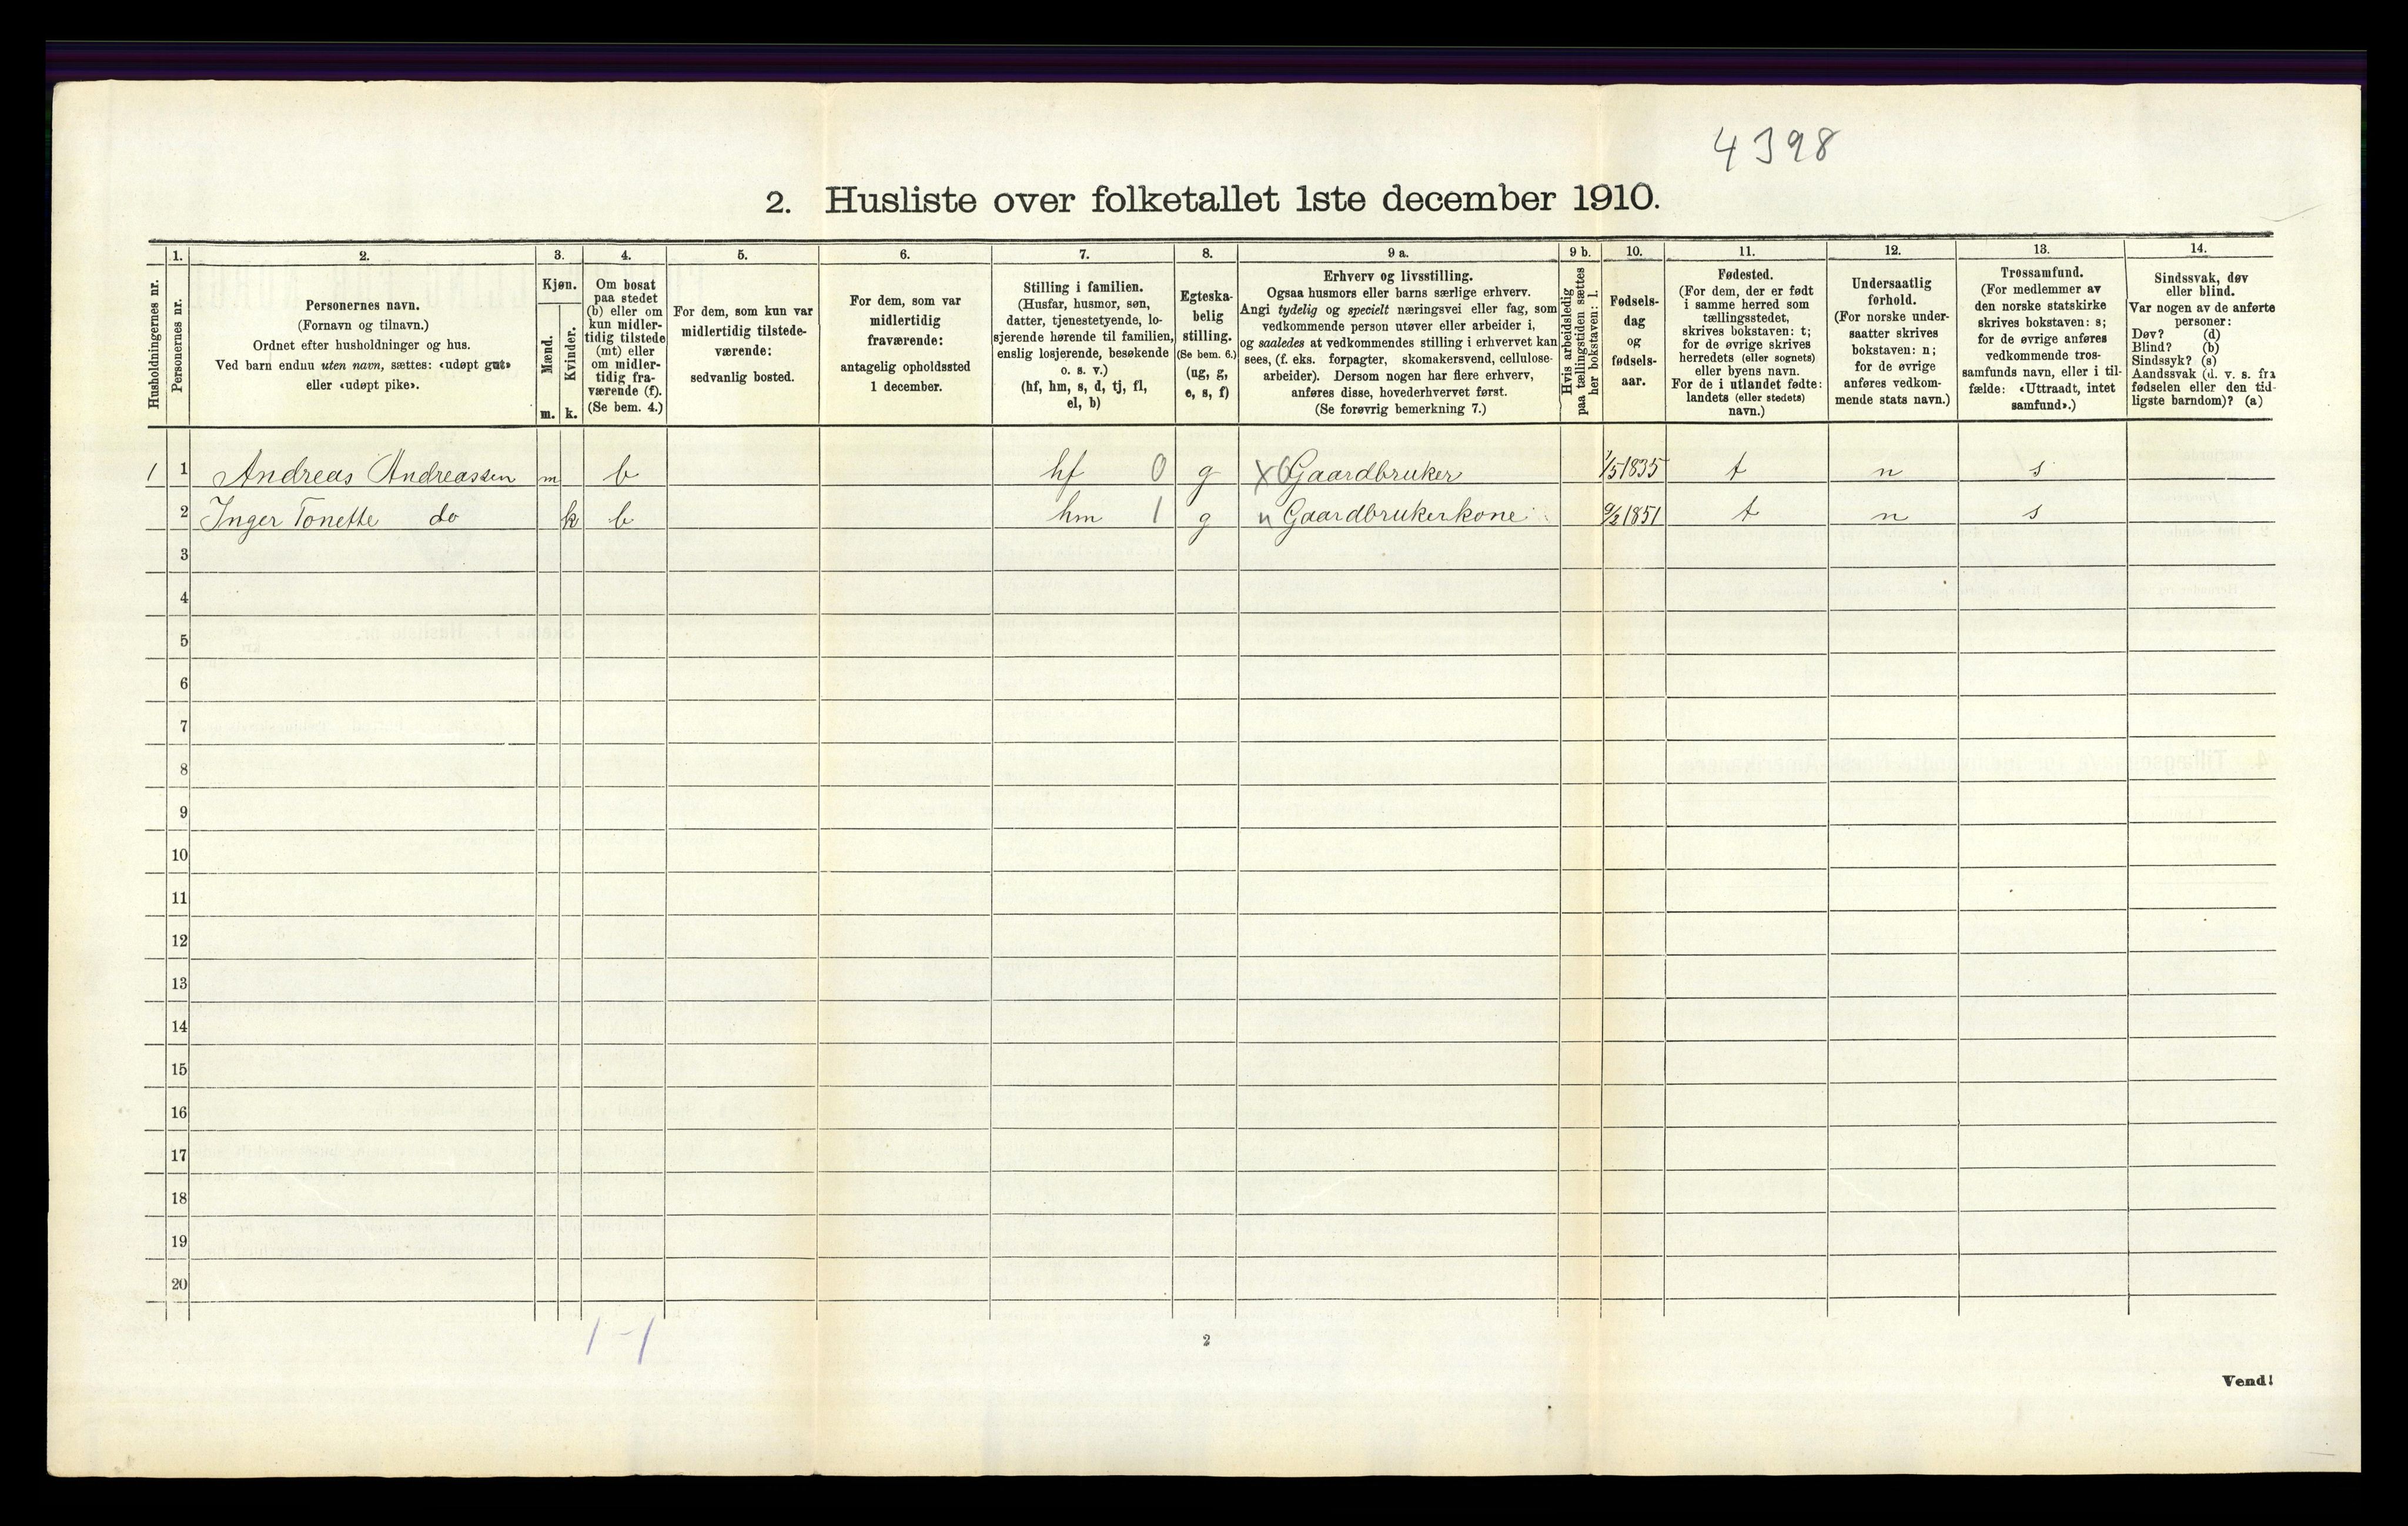 4398
2. Husliste over folketallet 1ste december 1910.
Husholdningernes nr.
1.
Personernes nr.
2.
Personernes navn.
(Fornavn og tilnavn.)
Ordnet efter husholdninger og hus.
Ved barn endnu uten navn, sættes: «udøpt gut»
eller «udøpt pike».
3.
Kjøn.
Mænd.
m.
Kvinder.
k.
4.
Om bosat
paa stedet
(b) eller om
kun midler-
tidig tilstede
(mt) eller
om midler-
tidig fra-
værende (f).
(Se bem. 4.)
5.
For dem, som kun var
midlertidig tilstede-
værende:
sedvanlig bosted.
6.
For dem, som var
midlertidig
fraværende:
antagelig opholdssted
1 december.
7.
Stilling i familien.
(Husfar, husmor, søn,
datter, tjenestetyende, lo-
sjerende hørende til familien,
enslig losjerende, besøkende
o. s. v.)
(hf, hm, s, d, tj, fl,
el, b)
8.
Egteska-
belig
stilling.
(Se bem. 6.)
(ug, g,
e, s, f)
9 a.
Erhverv og livsstilling.
Ogsaa husmors eller barns særlige erhverv.
Angi tydelig og specielt næringsvei eller fag, som
vedkommende person utøver eller arbeider i,
og saaledes at vedkommendes stilling i erhvervet kan
sees, (f. eks. forpagter, skomakersvend, cellulose-
arbeider). Dersom nogen har flere erhverv,
anføres disse, hovederhvervet først.
(Se forøvrig bemerkning 7.)
9 b.
Hvis arbeidsledig
paa tællingstiden sættes
her bokstaven: l.
10.
Fødsels-
dag
og
fødsels-
aar.
11.
Fødested.
(For dem, der er født
i samme herred som
tællingsstedet,
skrives bokstaven: t;
for de øvrige skrives
herredets (eller sognets)
eller byens navn.
For de i utlandet fødte:
landets (eller stedets)
navn.)
12.
Undersaatlig
forhold.
(For norske under-
saatter skrives
bokstaven: n;
for de øvrige
anføres vedkom-
mende stats navn.)
13.
Trossamfund.
(For medlemmer av
den norske statskirke
skrives bokstaven: s;
for de øvrige anføres
vedkommende tros-
samfunds navn, eller i til-
fælde: «Uttraadt, intet
samfund».)
14.
Sindssvak, døv
eller blind.
Var nogen av de anførte
personer:
Døv? (d)
Blind? (b)
Sindssyk? (s)
Aandssvak (d. v. s. fra
fødselen eller den tid-
ligste barndom)? (a)
1 1 Andreas Andreassen m b hf 0 g X0 Gaardbruker 1/5 1835 t n s
2 Inger Tonette do k b hm 1 g n Gaardbrukerkone 9/2 1851 t n s
3
4
5
6
7
8
9
10
11
12
13
14
15
16
17
18
19
20
1 - 1
2
Vend!